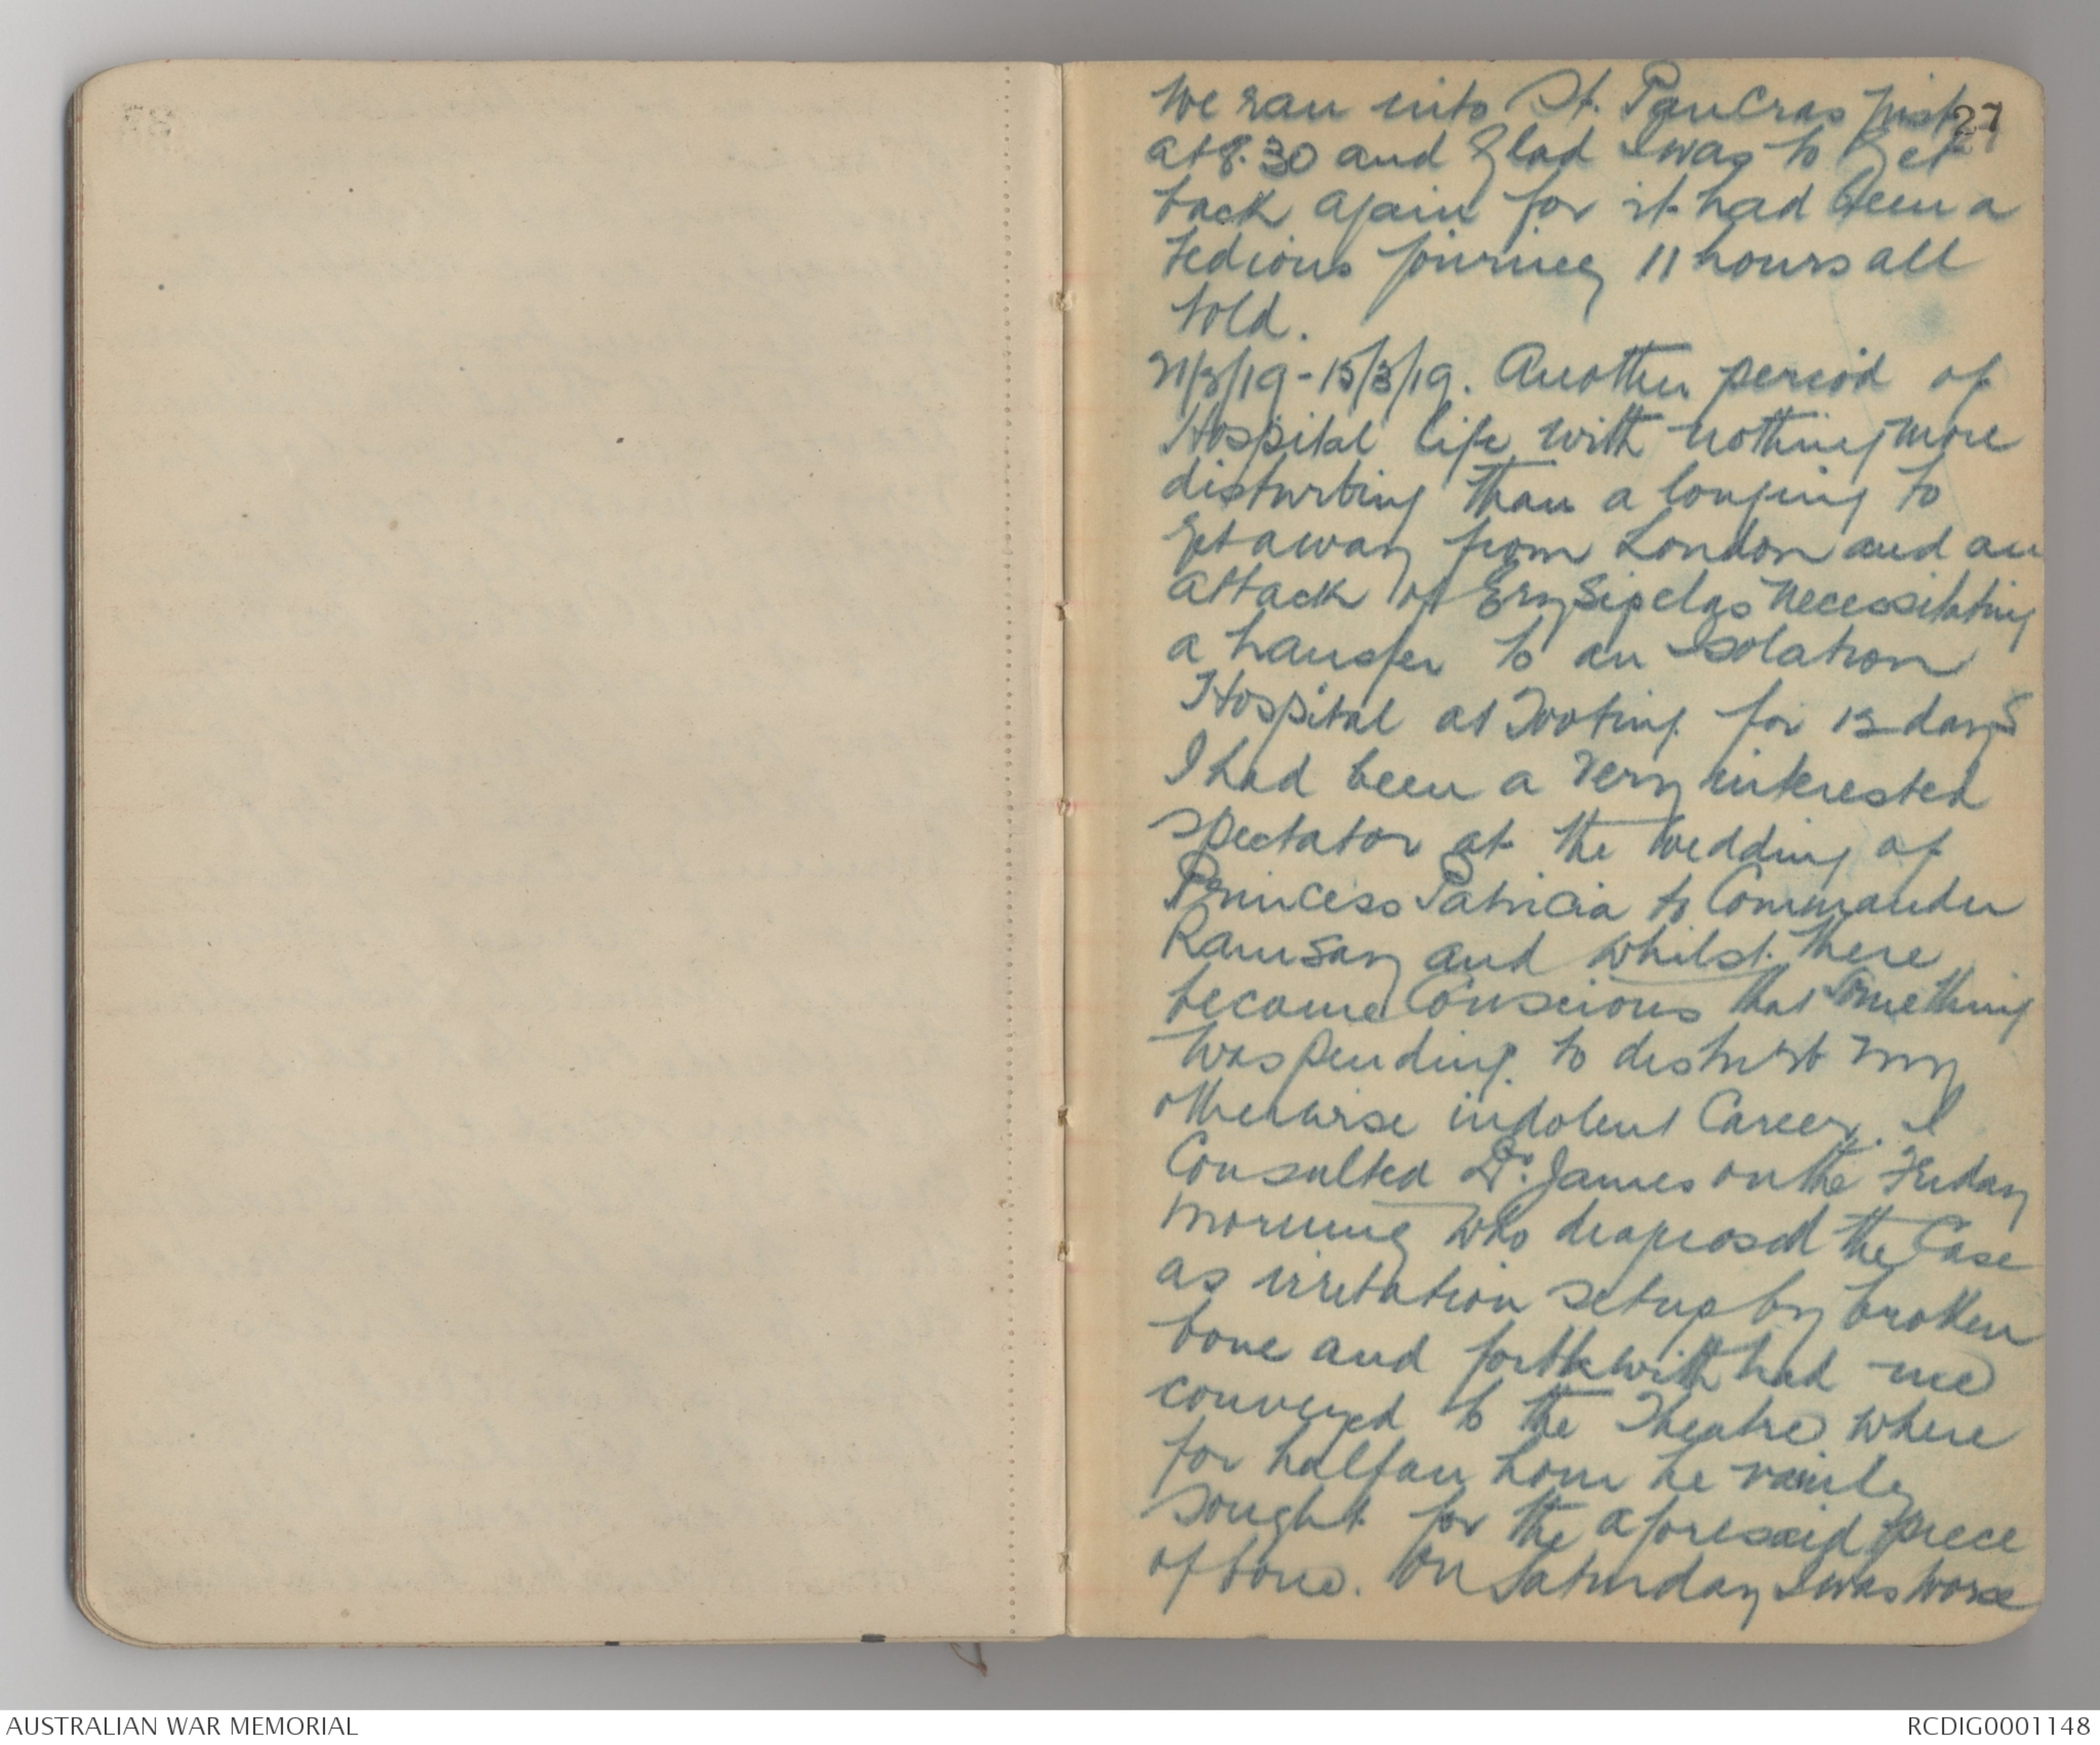 27
We ran into St. Pancras just
at 8.30 and glad I was to get
back again for it had been a
tedious journey 11 hours all
told.
21/2/19 - 15/3/19. Another period of
Hospital life with nothing more
disturbing than a longing to
get away from London and an
attack of Erysipelas necessitating
a transfer to an Isolation
Hospital at Tooting for 13 days
I had been a very interested
spectator at the wedding of
Princess Patricia to Commander
Ramsay and whilst there
became conscious that something
was pending to disturb my
otherwise indolent career. I
consulted Dr. James on the Friday
morning who diagnosed the case
as irritation set up by broken
bone and forthwith had me
conveyed to the Theatre where
for half an hour he vainly
sought for the aforesaid piece
of bone. On Saturday I was worse
AUSTRALIAN WAR MEMORIAL
RCDIG0001148